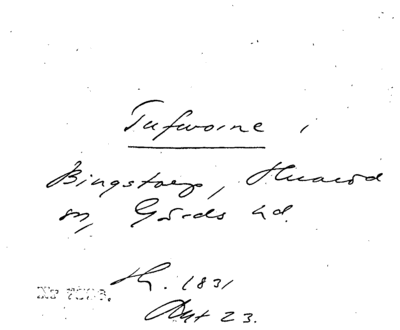 Tufwoine,
Bingstorp, Huaröd
sn, Gärds hd.
Th. 1831
Akt 23.